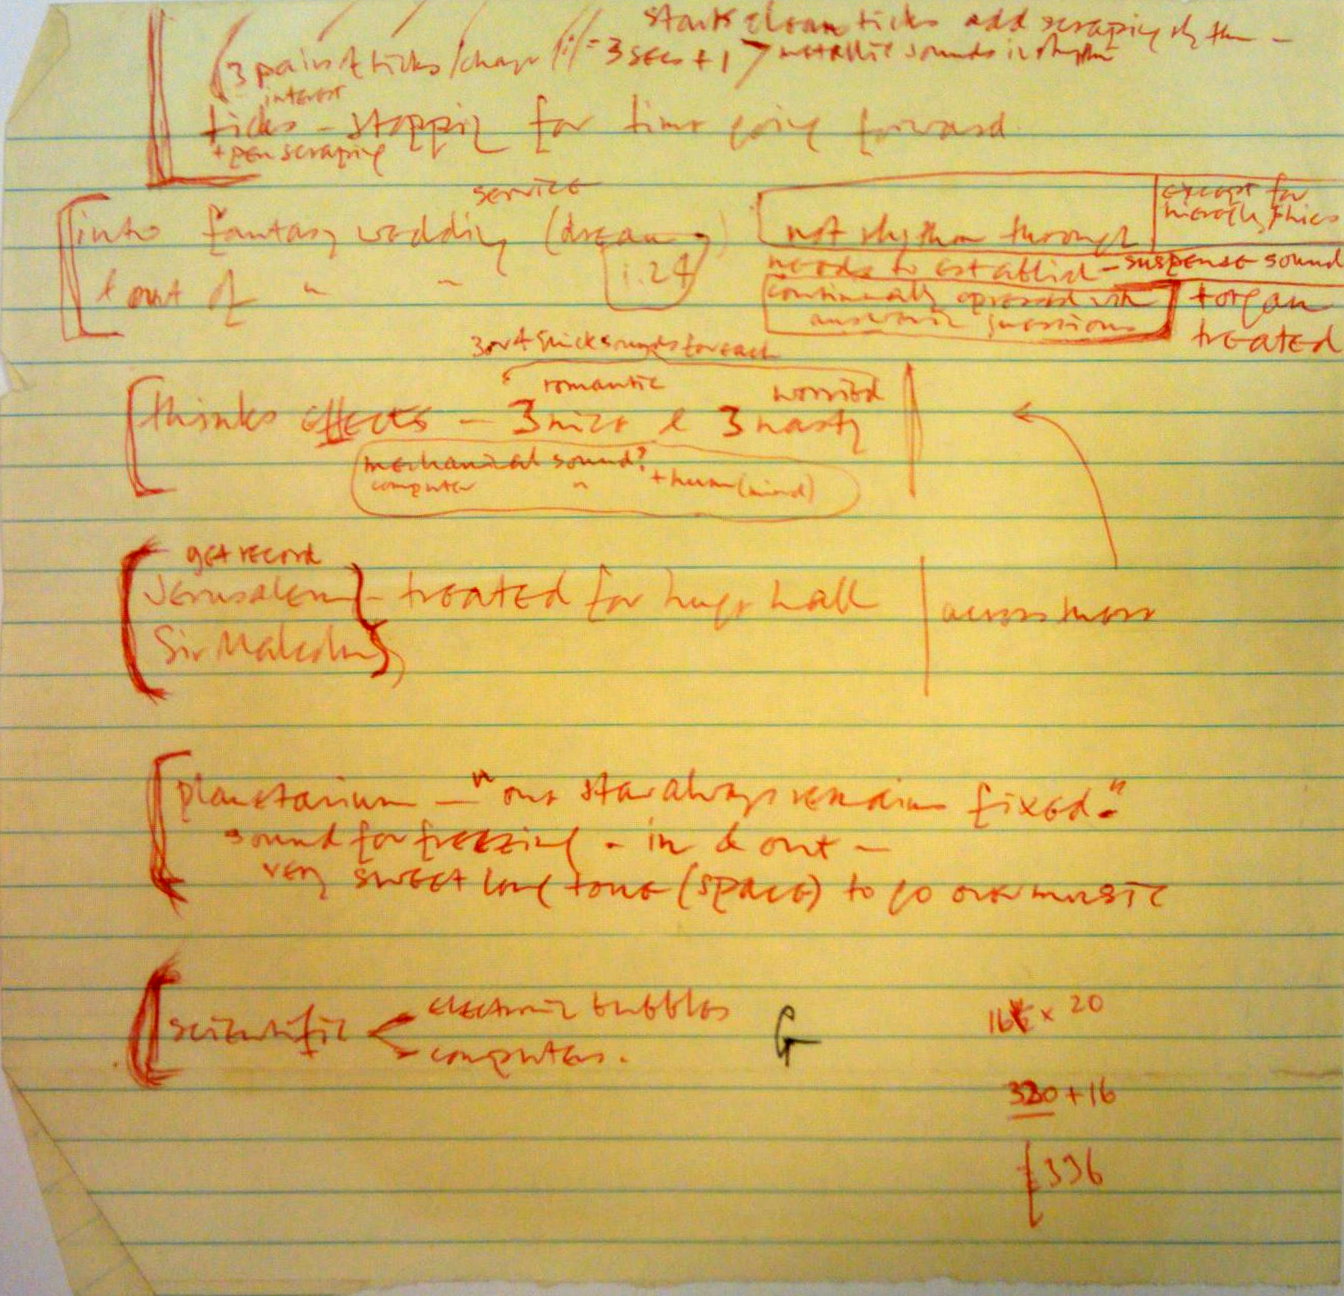 starts clean ticks add scraping rhythm –
(3 pairs of ticks / = 3 secs + 1 > metallic sounds in rhythm
interest
ticks – stopping for time going forward
+ pen scraping
service
into fantasy wedding (dream
& out of " "
1.24
not rhythm through
except for
needs to establish – suspense sound
continually
questions
+ organ
treated
3 or 4 quick sounds for each
romantic worried
thinks effects – 3 nice & 3 nasty
mechanical sound?
computer " + hum (mind)
get record
Jerusalem } – treated for huge hall
Sir Malcolm
planetarium – "one star always remains fixed."
sound for freezing – in & out –
very sweet long tone (space) to go over music
scientific < electronic bubbles
computers.
G
16 x 20
320 + 16
336